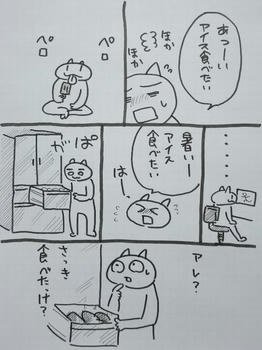 あつーい
アイス食べたい
ほか
ほか
ペロ
ペロ
・・・・・
暑いー
アイス
食べたい
はー、
がぱ
アレ?
さっき
食べたっけ?